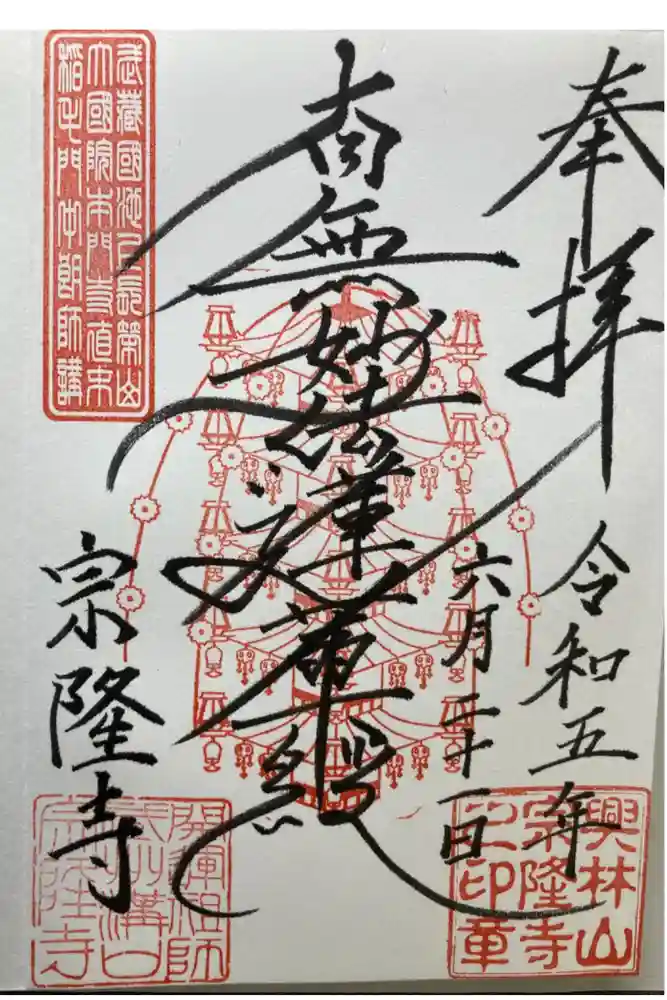 奉拝
令和五年
六月二十一日
南無妙法蓮華経
宗隆寺
武蔵國池上長榮山
大國院本門寺直末
稲毛門中朗師講
興林山
宗隆寺
之印章
開運祖師
武州溝口
宗隆寺